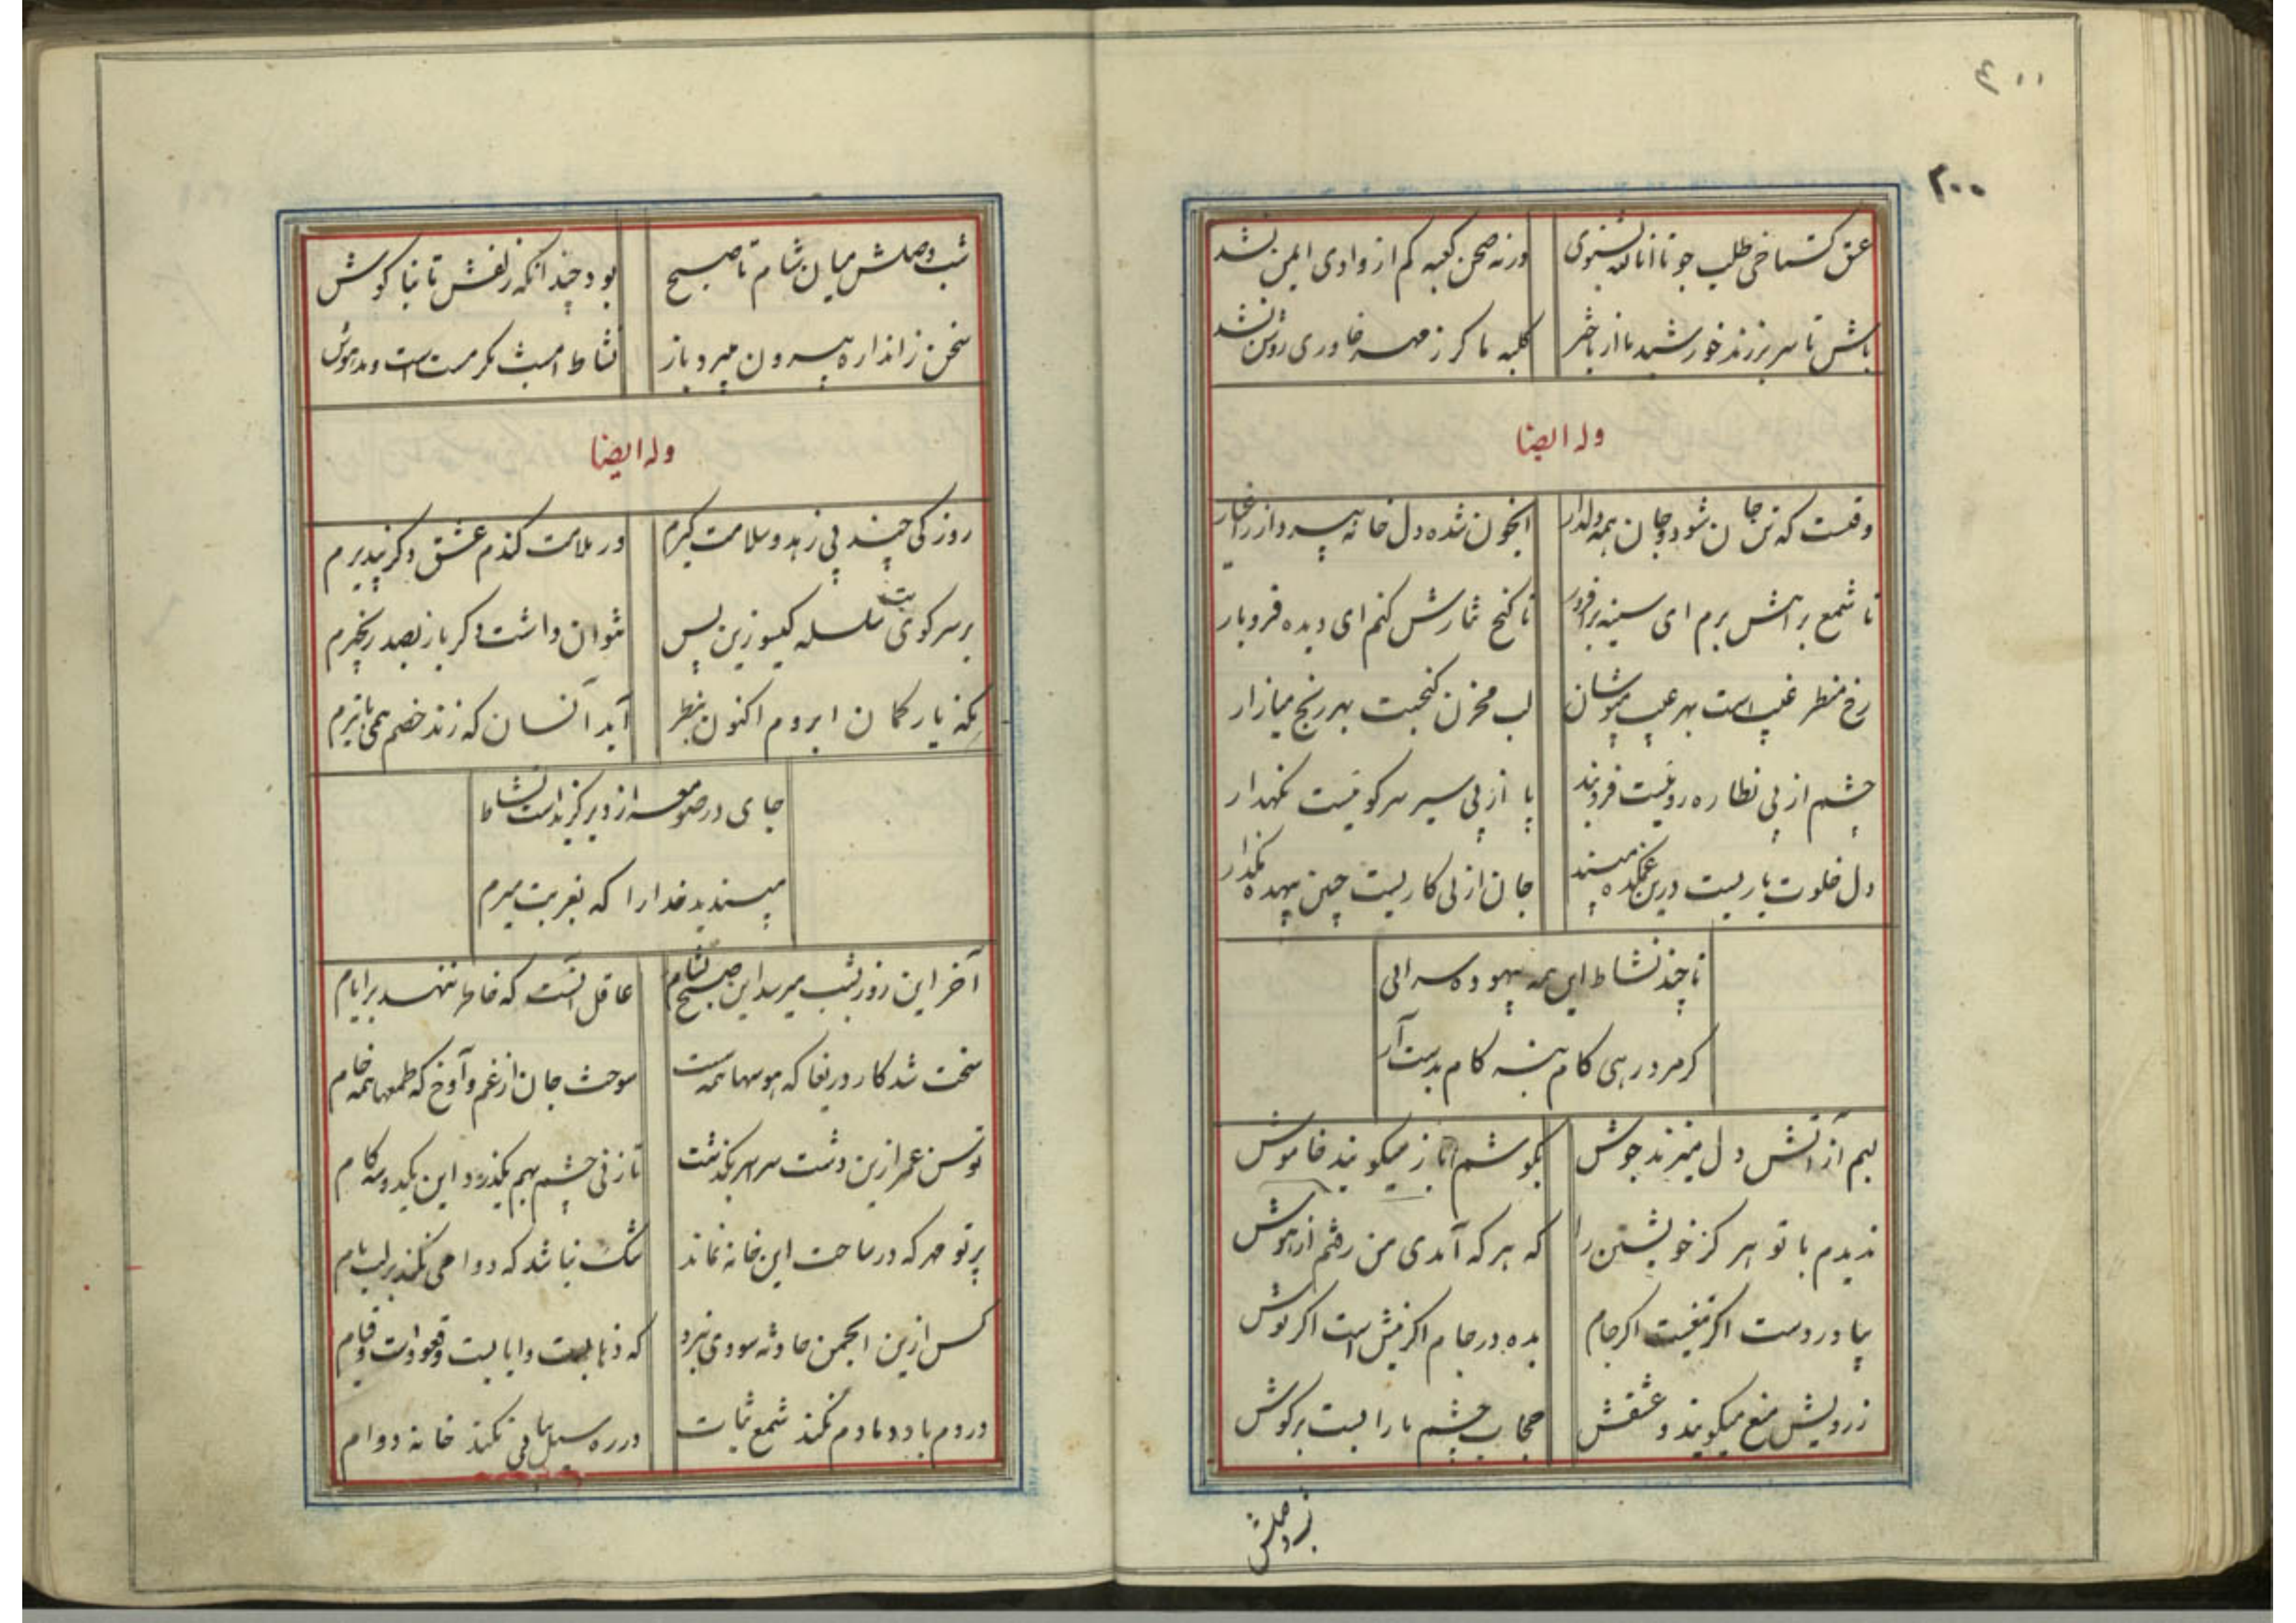 ۲۰۰
عشق گستاخی طلب جو تا انا الله بشنوی
ورنه صحن کعبه کم از وادی ایمن نشد
باش تا سر برزند خورشید ما از باختر
کلبه ما کر ز مهر خاوری روشن نشد
وله ایضا
وقتست که تن جان شود و جان همه دلدار
انجو‌ن شده دل خانه بپرداز ز اغیار
تا شمع براهش برم ای سینه برافروز
تا کنج نثارش کنم ای دیده فرو بار
رخ منظر غیب است بهر عیب مپوشان
لب مخزن کنجیت بهر رنج میازار
چشم از پی نظاره روئیست فروبند
پا از پی سیر سر کوئیست نکهدار
دل خلوت یاریست درین غمکده مپسند
جان از پی کاریست چنین بیهده مکذار
تا چند نشاط این همه بیهوده سرائی
کر مرد رهی کام بنه کام بدست آر
لبم از آتش دل میزند جوش
بکوشم باز میکویند خاموش
ندیدم با تو هرکز خویشتن را
که هر که آمدی من رفتم از هوش
بیا در دست اکر تیغیست اکر جام
بده در جام اکر نیش است اکر نوش
ز رویش منع میکویند و عشقش
حجاب چشم ما را بست بر کوش
شب وصلش
شب وصلش میان شام تا صبح
بود چندانکه زلفش تا بناکوش
سخن ز اندازه بیرون میرود باز
نشاط امشب مکر مست است و مدهوش
وله ایضا
روزکی چند پی زهد و سلامت کیرم
ور ملامت کندم عشق دکر نپذیرم
بر سر کوی بت سلسله کیسو زین پس
نتوان داشت دکر باز بصد زنجیرم
نکند یار کمان ابروم اکنون بنظر
آید آنسان که زند خصم همی با تیرم
جای در صومعه از دیر کزیداست نشاط
مپسندید خدا را که بغربت میرم
آخر این روز بشب میرسد این صبح بشام
عاقل آنست که خاطر ننهد بر ایام
سخت شد کار و دریغا که هوسها همه سست
سوخت جان از غم و آوخ که طمعها همه خام
توسن عمر ازین دشت سراسر بکذشت
تا زنی چشم بهم بکذرد این یکدو سه کام
پرتو مهر که در ساحت این خانه نماند
شک نباشد که دوامی نکند بر لب بام
کس ازین انجمن حادثه سودی نبرد
که ذهابست و ایابست و قعود است و قیام
در دم باد دمادم نکند شمع ثبات
در ره سیل پیاپی نکند خانه دوام